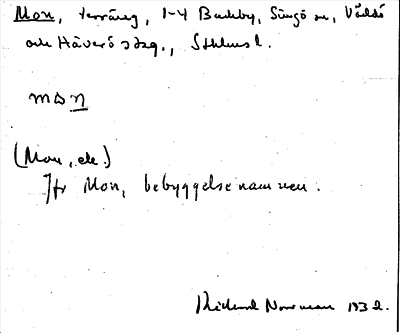 Mon, terräng, 1-4 Backby, Singö sn, Väddö
och Häverö sdsg., Sthlms l.
mɷn
(Mon, ek.)
Jfr Mon, bebyggelsenamnen.
Rickard Norrman 1932.